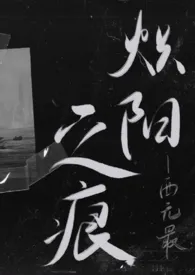 炽阳
之痕
—西元最